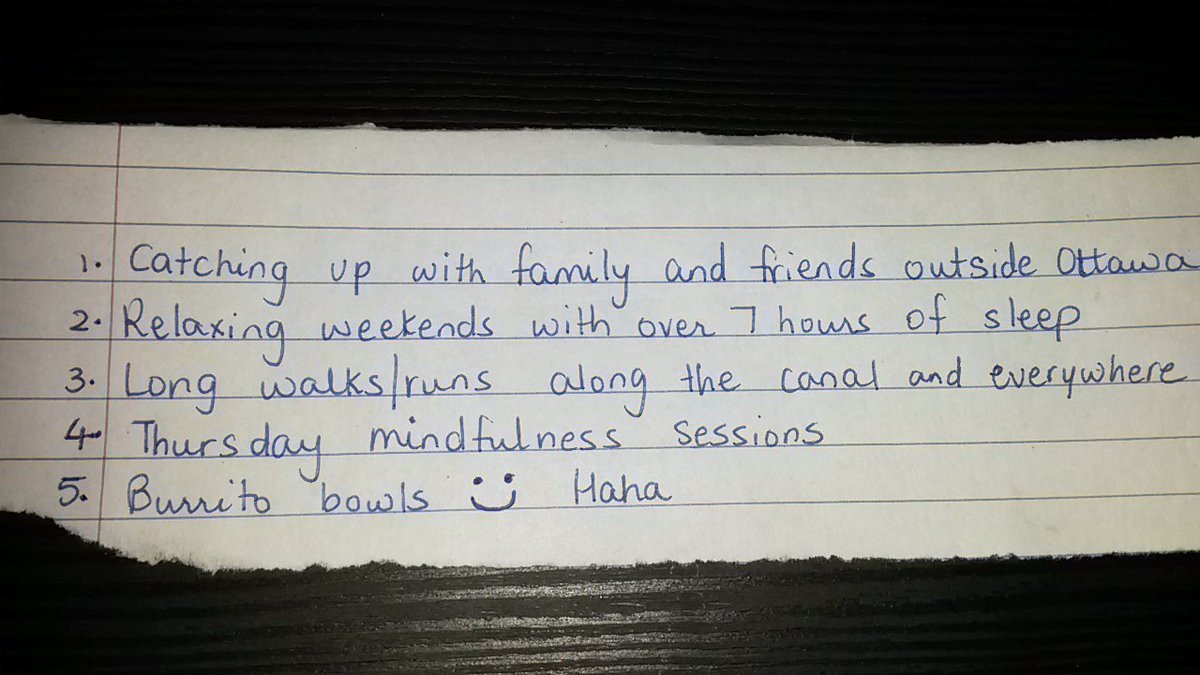 1. Catching up with family and friends outside Ottawa
2. Relaxing weekends with over 7 hours of sleep
3. Long walks/runs along the canal and everywhere
4. Thursday mindfulness sessions
5. Burrito bowls :) Haha